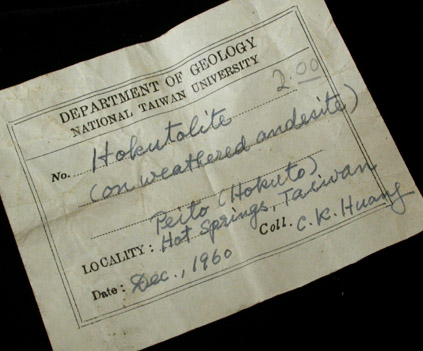 DEPARTMENT OF GEOLOGY
NATIONAL TAIWAN UNIVERSITY
2.00
No. Hokutolite
(on weathered andesite)
Peito (Hokuto)
LOCALITY: Hot Springs, Taiwan
Date: Dec., 1960 Coll. C. K. Huang